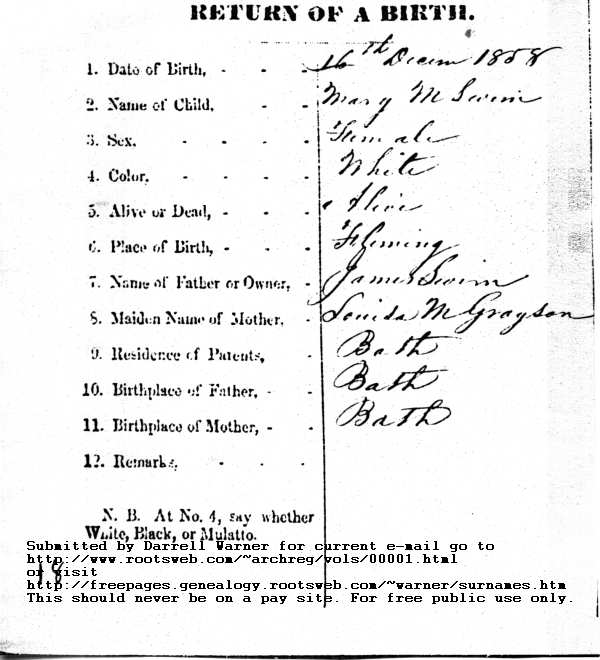 RETURN OF A BIRTH.
1. Date of Birth, - - - 16th Decem 1858
2. Name of Child, - - Mary M Swim
3. Sex. - - - - Female
4. Color. - - - - White
5. Alive or Dead, - - - Alive
6. Place of Birth, - - - Fleming
7. Name of Father or Owner, - James Swim
8. Maiden Name of Mother. - Louisa M Grayson
9. Residence of Parents, - Bath
10. Birthplace of Father, - - Bath
11. Birthplace of Mother, - - Bath
12. Remarks. - - -
N. B. At No. 4, say whether
White, Black, or Mulatto.
Submitted by Darrell Warner for current e-mail go to
http://www.rootsweb.com/~archreg/vols/00001.html
or visit
http://freepages.genealogy.rootsweb.com/~warner/surnames.htm
This should never be on a pay site. For free public use only.